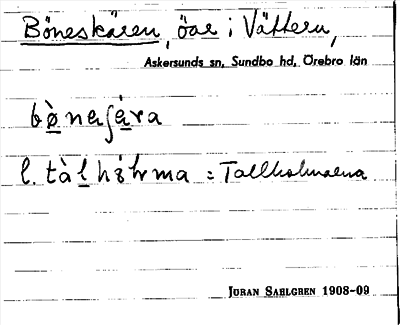 Böneskären, öar i Vättern,
Askersunds sn, Sundbo hd, Örebro län
bø̀neʃæ̀ra
l. tàlhólrma = Tallholmarna
JÖRAN SAHLGREN 1908-09